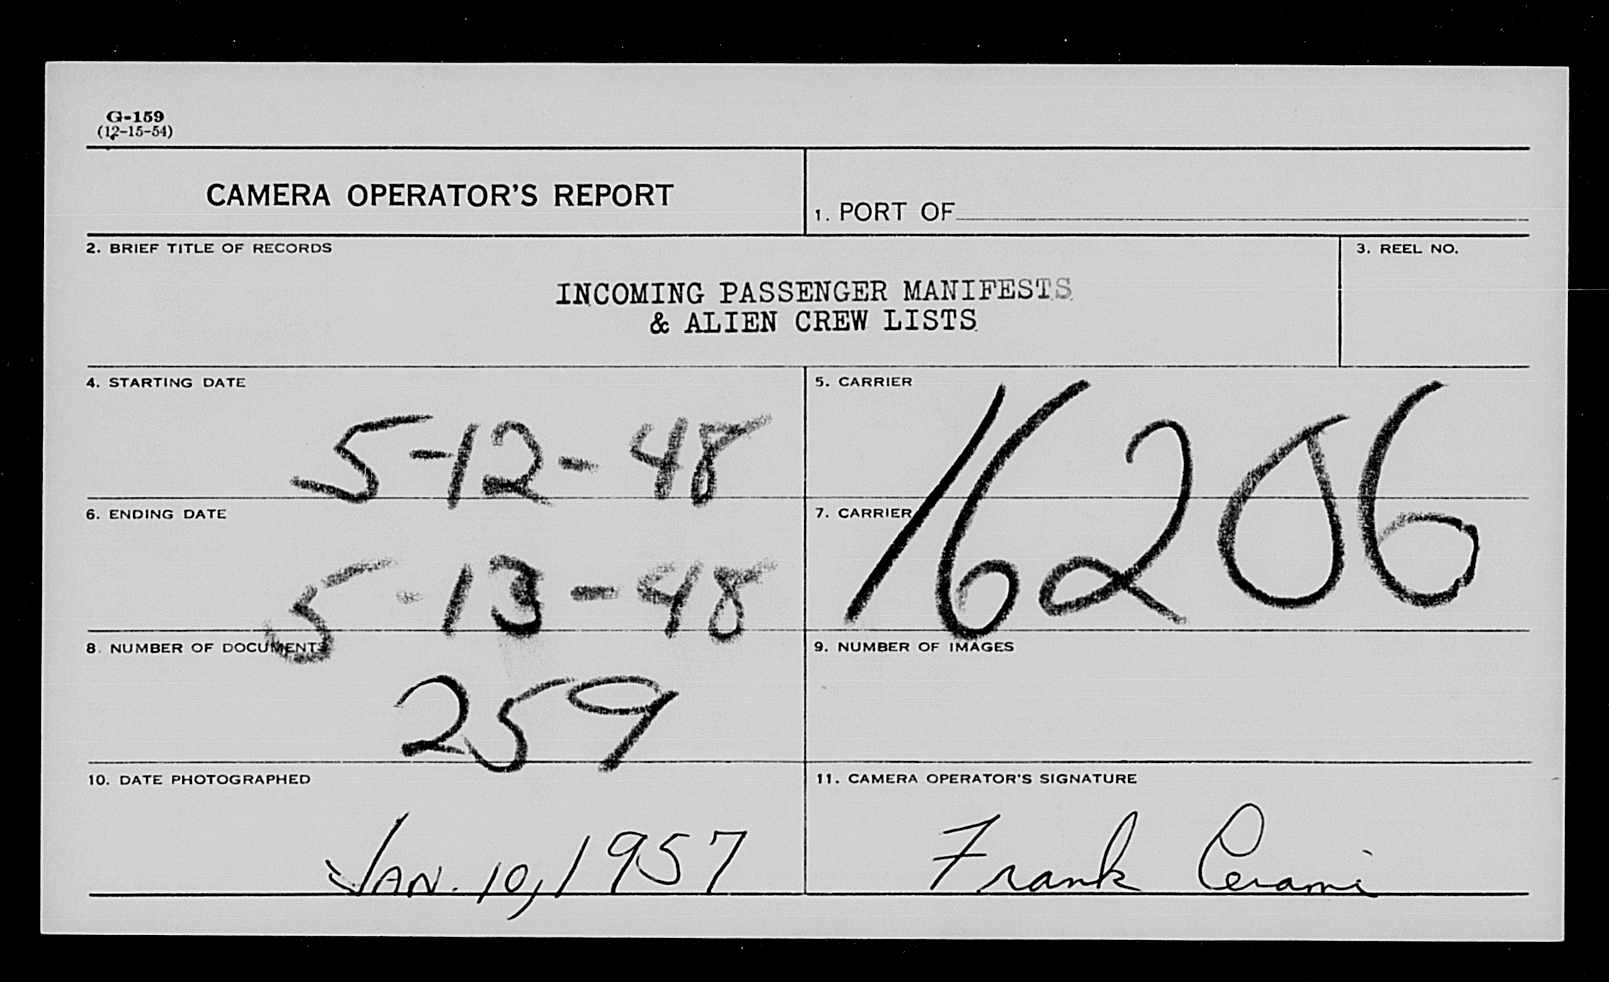 G-159
(12-15-54)
CAMERA OPERATOR'S REPORT
1. PORT OF
2. BRIEF TITLE OF RECORDS
3. REEL NO.
INCOMING PASSENGER MANIFESTS
& ALIEN CREW LISTS
4. STARTING DATE
5-12-48
5. CARRIER
16206
6. ENDING DATE
5-13-48
7. CARRIER
8. NUMBER OF DOCUMENTS
259
9. NUMBER OF IMAGES
10. DATE PHOTOGRAPHED
JAN. 10, 1957
11. CAMERA OPERATOR'S SIGNATURE
Frank Cerami